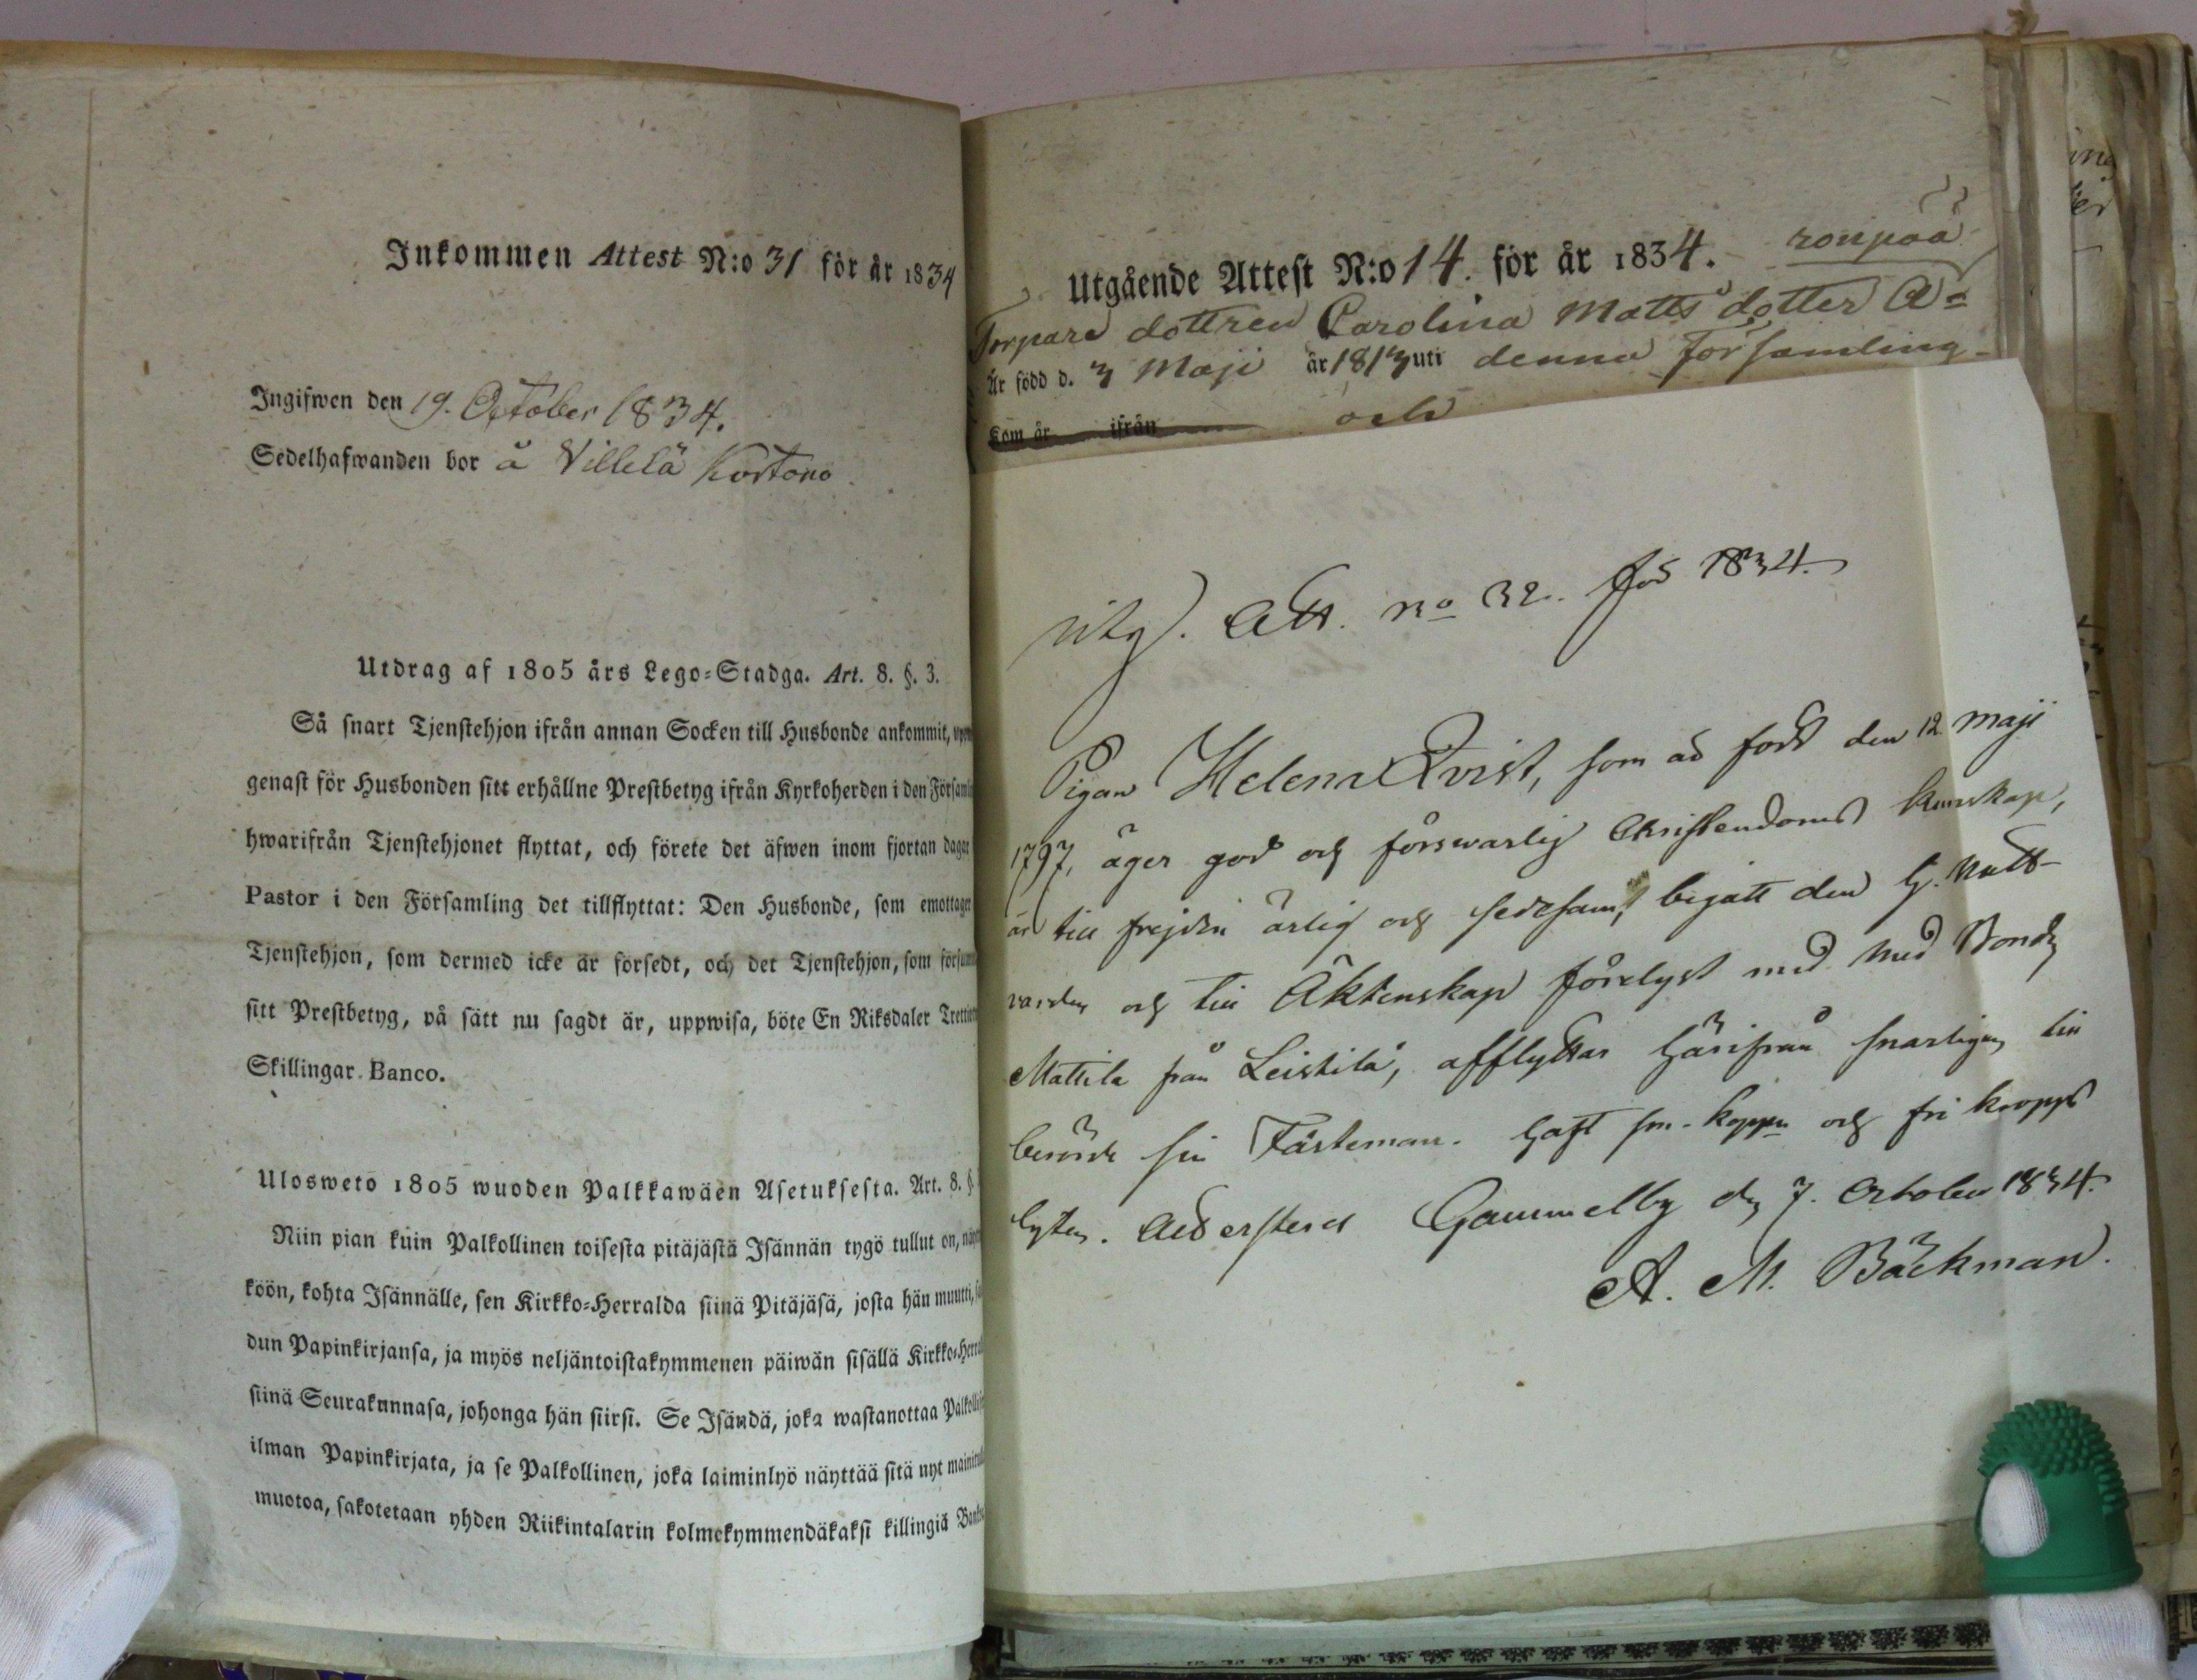 Inkommen Attest N:o 31 för år 1834
Ingifwen den 19. October 1834.
Sedelhafwanden bor å Villilä Kortono
Utdrag af 1805 års Lego-Stadga. Art. 8. §. 3.
Så snart Tjenstehjon ifrån annan Socken till Husbonde ankommit,
genast för Husbonden sitt erhållne Prestbetyg ifrån Kyrkoherden i den
hwarifrån Tjenstehjonet flyttat, och förete det äfwen inom fjortan dagar
Pastor i den Församling det tillflyttat: Den Husbonde, som emottager
Tjenstehjon, som dermed icke är försedt, och det Tjenstehjon, som
sitt Prestbetyg, på sätt nu sagdt är, uppwisa, böte En Riksdaler
Skillingar Banco.
Ulosweto 1805 wuoden Palkkawäen Asetuksesta. Art. 8. §.
Niin pian kuin Palkollinen toisesta pitäjästä Isännän tygö tullut on,
köön, kohta Isännälle, sen Kirkko-Herralda siinä Pitäjäsä, josta hän muutti,
dun Papinkirjansa, ja myös neljäntoistakymmenen päiwän sisällä
siinä Seurakunnasa, johonga hän siirsi. Se Isändä, joka wastanottaa
ilman Papinkirjata, ja se Palkollinen, joka laiminlyö näyttää sitä nyt
muotoa, sakotetaan yhden Riikintalarin kolmekymmendäkaksi killingiä
Utgående Attest N:o 14. för år 1834. ronpää
Torpare dottren Carolina Matts dotter A=
Är född d. 3 Maji år 1813 uti denna församling
Kom år ifrån och
Utg. Att. No 32. för 1834.
Pigan Helena Qvist, som är född den 12 Maji
1797, äger god och förswarlig Christendoms kunskap,
är till frejden ärlig och sedesam, begått den H. Natt-
varden och till Äktenskap förelyst med med Bonden
Mattila från Leistilä, afflyttar härifrån snarligen till
berörde sin Fästeman. Haft sm.koppor och fri kropps
lyten. Attesteras Gammelby den 7. October 1834.
A. M. Bäckman.